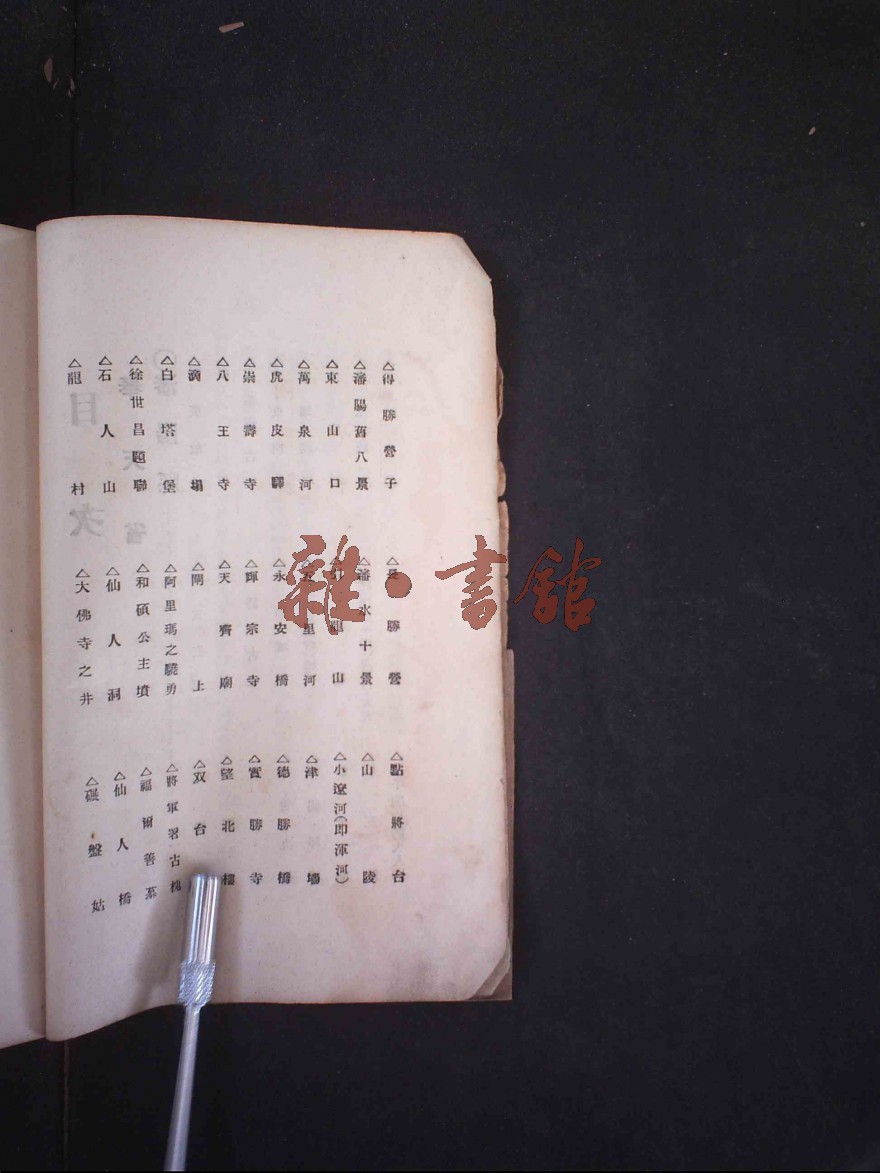 △得勝營子　△長勝營　△點將台
△瀋陽舊八景　△瀋水十景　△山陵
△東山口　山　△小遼河(即渾河)
△萬泉河　里河　△津橋
△虎皮驛　△永安橋　△德勝橋
△崇壽寺　△輝宗寺　△實勝寺
△八王寺　△天齊廟　△望北樓
△滴場　△閘上　△双台
△白塔堡　△阿里瑪之驍勇　△將軍署古槐
△徐世昌題聯　△和碩公主墳　△福爾善墓
△石人山　△仙人洞　△仙人橋
△龍村　△大佛寺之井　△碾盤姑
雜·書館